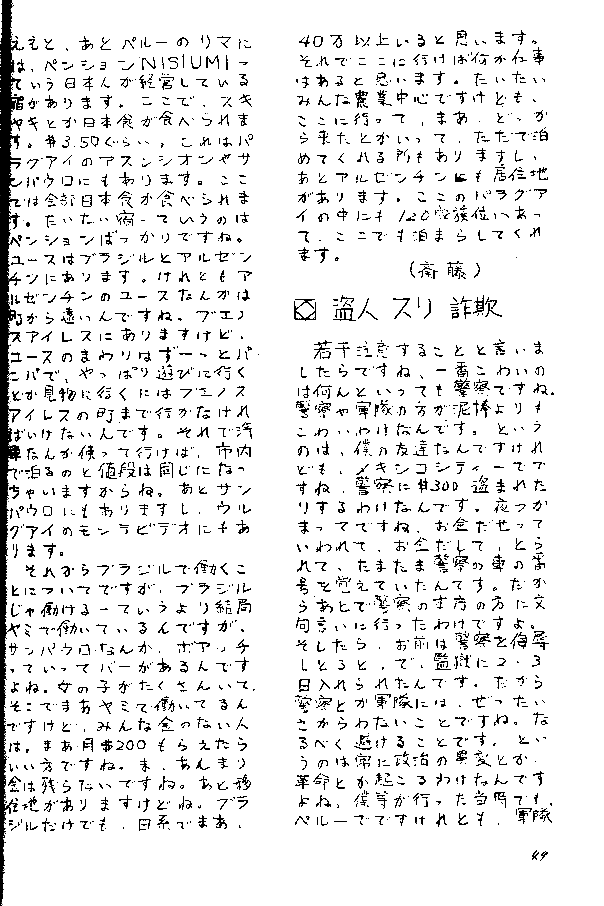 ええと、あとペルーのリマに
は、ペンションNISIUMIっ
ていう日本人が経営している
宿があります。ここで、スキ
ヤキとか日本食が食べられま
す。$3.50ぐらい。これはパ
ラグアイのアスンシオンやサ
ンパウロにもあります。ここ
では全部日本食が食べられま
す。だいたい宿っていうのは
ペンションばっかりですね。
ユースはブラジルとアルゼン
チンにあります。けれどもア
ルゼンチンのユースなんかは
町から遠いんですね。ブエノ
スアイレスにありますけど、
ユースのまわりはずーっとパ
ンパで、やっぱり遊びに行く
とか見物に行くにはブエノス
アイレスの町まで行かなけれ
ばいけないんです。それで汽
車なんか使って行けば、市内
で泊るのと値段は同じになっ
ちゃいますからね。あとサン
パウロにもありますし、ウル
グアイのモンテビデオにもあ
ります。
　それからブラジルで働くこ
とについてですが、ブラジル
じゃ働けるーていうより結局
ヤミで働いているんですが、
サンパウロなんか、ボアッチ
っていってバーがあるんです
よね。女の子がたくさんいて、
そこでまあヤミで働いてるん
ですけど、みんな金のない人
は。まあ月$200もらえたら
いい方ですね。ま、あんまり
金は残らないですね。あと移
住地がありますけどね。ブラ
ジルだけでも、日系でまあ、
40万以上いると思います。
それでここに行けば何か仕事
はあると思います。だいたい
みんな農業中心ですけども、
ここに行って、まあ、どっか
ら来たとかいって、ただで泊
めてくれる所もありますし、
あとアルゼンチンにも居住地
があります。ここのパラグア
イの中にも120家族位いあっ
て、ここでも泊まらしてくれ
ます。
（斎藤）
盗人 スリ 詐欺
　若干注意することと言いま
したらですね、一番こわいの
は何んといっても警察ですね。
警察や軍隊の方が泥棒よりも
こわいわけなんです。という
のは、僕の友達なんですけれ
ども、メキシコシティーでで
すね、警察に$300盗まれた
りするわけなんです。夜つか
まってですね、お金だせって
いわれて、お金だして、とら
れて、たまたま警察の車の番
号を覚えていたんです。だか
らあとで警察の方の方に文
句言いに行ったわけですよ。
そしたら、お前は警察を侮辱
しとると、で、監獄に2・3
日入れられたんです。だから
警察とか軍隊には、ぜったい
さからわないことですね。な
るべく避けることです。とい
うのは常に政治の異変とか、
革命とか起こるわけなんです
よね。僕等が行った当時でも、
ペルーでですけれども、軍隊
49